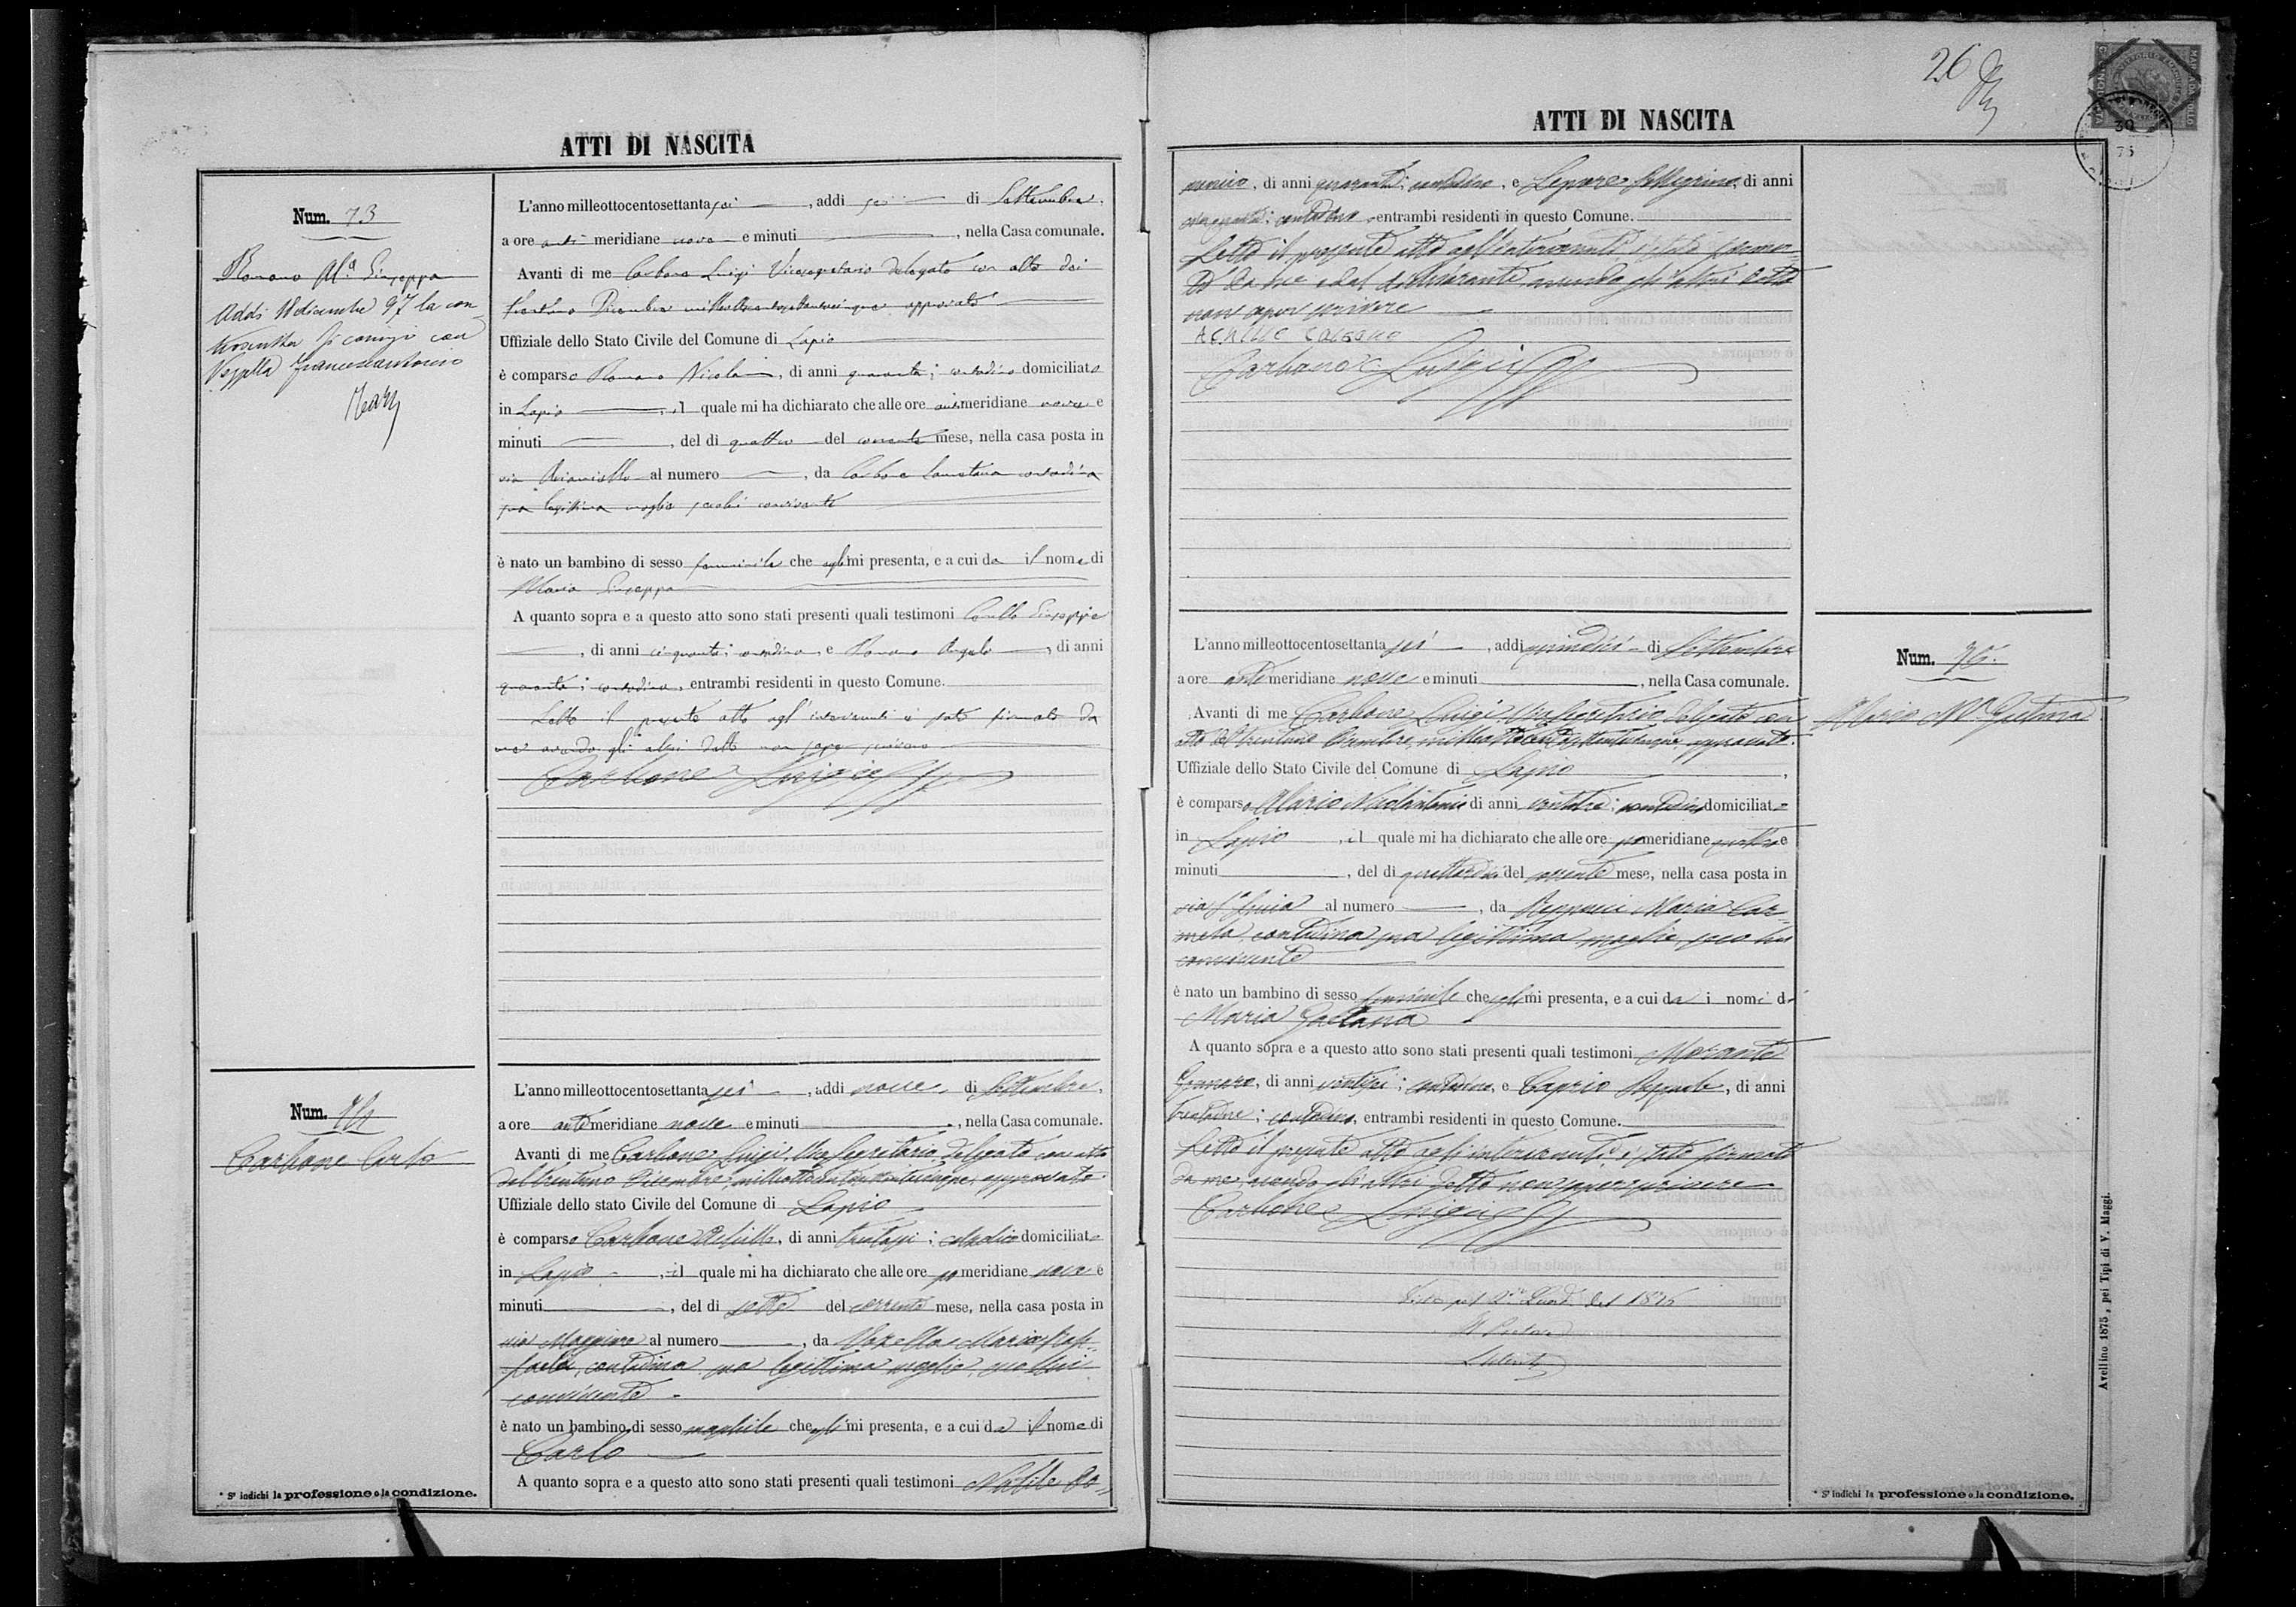 ATTI DI NASCITA
Num. 73
Romano M.a Giuseppa
Addì 18 dicembre 97 la con-
troscritta si coniugò con
Vozzella Francescantonio
L'anno milleottocentosettanta sei, addi sei di Settembre,
a ore anti meridiane nove e minuti, nella Casa comunale.
Avanti di me Carbone Luigi Vicesegretario delegato con atto dei
trentuno Dicembre milleottocentosettantacinque approvato
Uffiziale dello Stato Civile del Comune di Lapio
è comparso Romano Nicola, di anni quaranta; contadino domiciliato
in Lapio, il quale mi ha dichiarato che alle ore antimeridiane nove e
minuti, del dì quattro del corrente mese, nella casa posta in
via al numero, da Carbone contadina
sua legittima moglie secolui convivente
è nato un bambino di sesso femminile che egli mi presenta, e a cui da il nome di
Maria Giuseppa
A quanto sopra e a questo atto sono stati presenti quali testimoni Giuseppe
, di anni cinquanta; contadino, e Romano Angelo, di anni
quaranta; contadino, entrambi residenti in questo Comune.
Letto il presente atto agl'intervenuti si è stato firmato da
me avendo gli altri detto non saper scrivere
Carbone Luigi
Num. 74
Carbone Carlo
L'anno milleottocentosettanta sei, addi nove, di Settembre,
a ore antimeridiane nove e minuti, nella Casa comunale.
Avanti di me Carbone Luigi, Vice Segretario delegato con atto
del trentuno Dicembre milleottocentosettantacinque, approvato
Uffiziale dello stato Civile del Comune di Lapio
è comparso Carbone Achille, di anni trentasei; domiciliato
in Lapio, il quale mi ha dichiarato che alle ore pomeridiane nove e
minuti, del dì sette del corrente mese, nella casa posta in
via Maggiore al numero, da Vozzella Maria Raf-
faela, contadina sua legittima moglie, seco lui
convivente
è nato un bambino di sesso maschile che egli mi presenta, e a cui da il nome di
Carlo
A quanto sopra e a questo atto sono stati presenti quali testimoni Natile Do-
* Si indichi la professione o la condizione.
26
ATTI DI NASCITA
menico, di anni quaranta; contadino, e Lepore Pellegrino, di anni
cinquanta; contadino entrambi residenti in questo Comune.
Letto il presente atto agl'intervenuti, è stato firma-
to da me e dal dichiarante, avendo gli altri detto
non saper scrivere
Achille Carbone
Carbone Luigi
Num. 75.
Alario M.a Gaetana
L'anno milleottocentosettanta sei, addi quindici di Settembre
a ore antimeridiane nove e minuti, nella Casa comunale.
Avanti di me Carbone Luigi Vice Segretario, delegato con
atto del trentuno Dicembre milleottocentosettantacinque, approvato.
Uffiziale dello Stato Civile del Comune di Lapio,
è comparso Alario di anni ventitre; contadino domiciliato
in Lapio, il quale mi ha dichiarato che alle ore pomeridiane quattro e
minuti, del dì quattordici del corrente mese, nella casa posta in
via al numero, da Maria Car-
mela, contadina sua legittima moglie, seco lui
convivente
è nato un bambino di sesso femminile che egli mi presenta, e a cui da i nomi di
Maria Gaetana
A quanto sopra e a questo atto sono stati presenti quali testimoni Morante
Gennaro, di anni ventisei; contadino, e Caprio Pasquale, di anni
trentadue; contadino, entrambi residenti in questo Comune.
Letto il presente atto agli intervenuti, è stato firmato
da me, avendo gli altri detto non saper scrivere
Carbone Luigi
1876
Il Pretore
* Si indichi la professione o la condizione.
Avellino 1875, pei Tipi di V. Maggi.